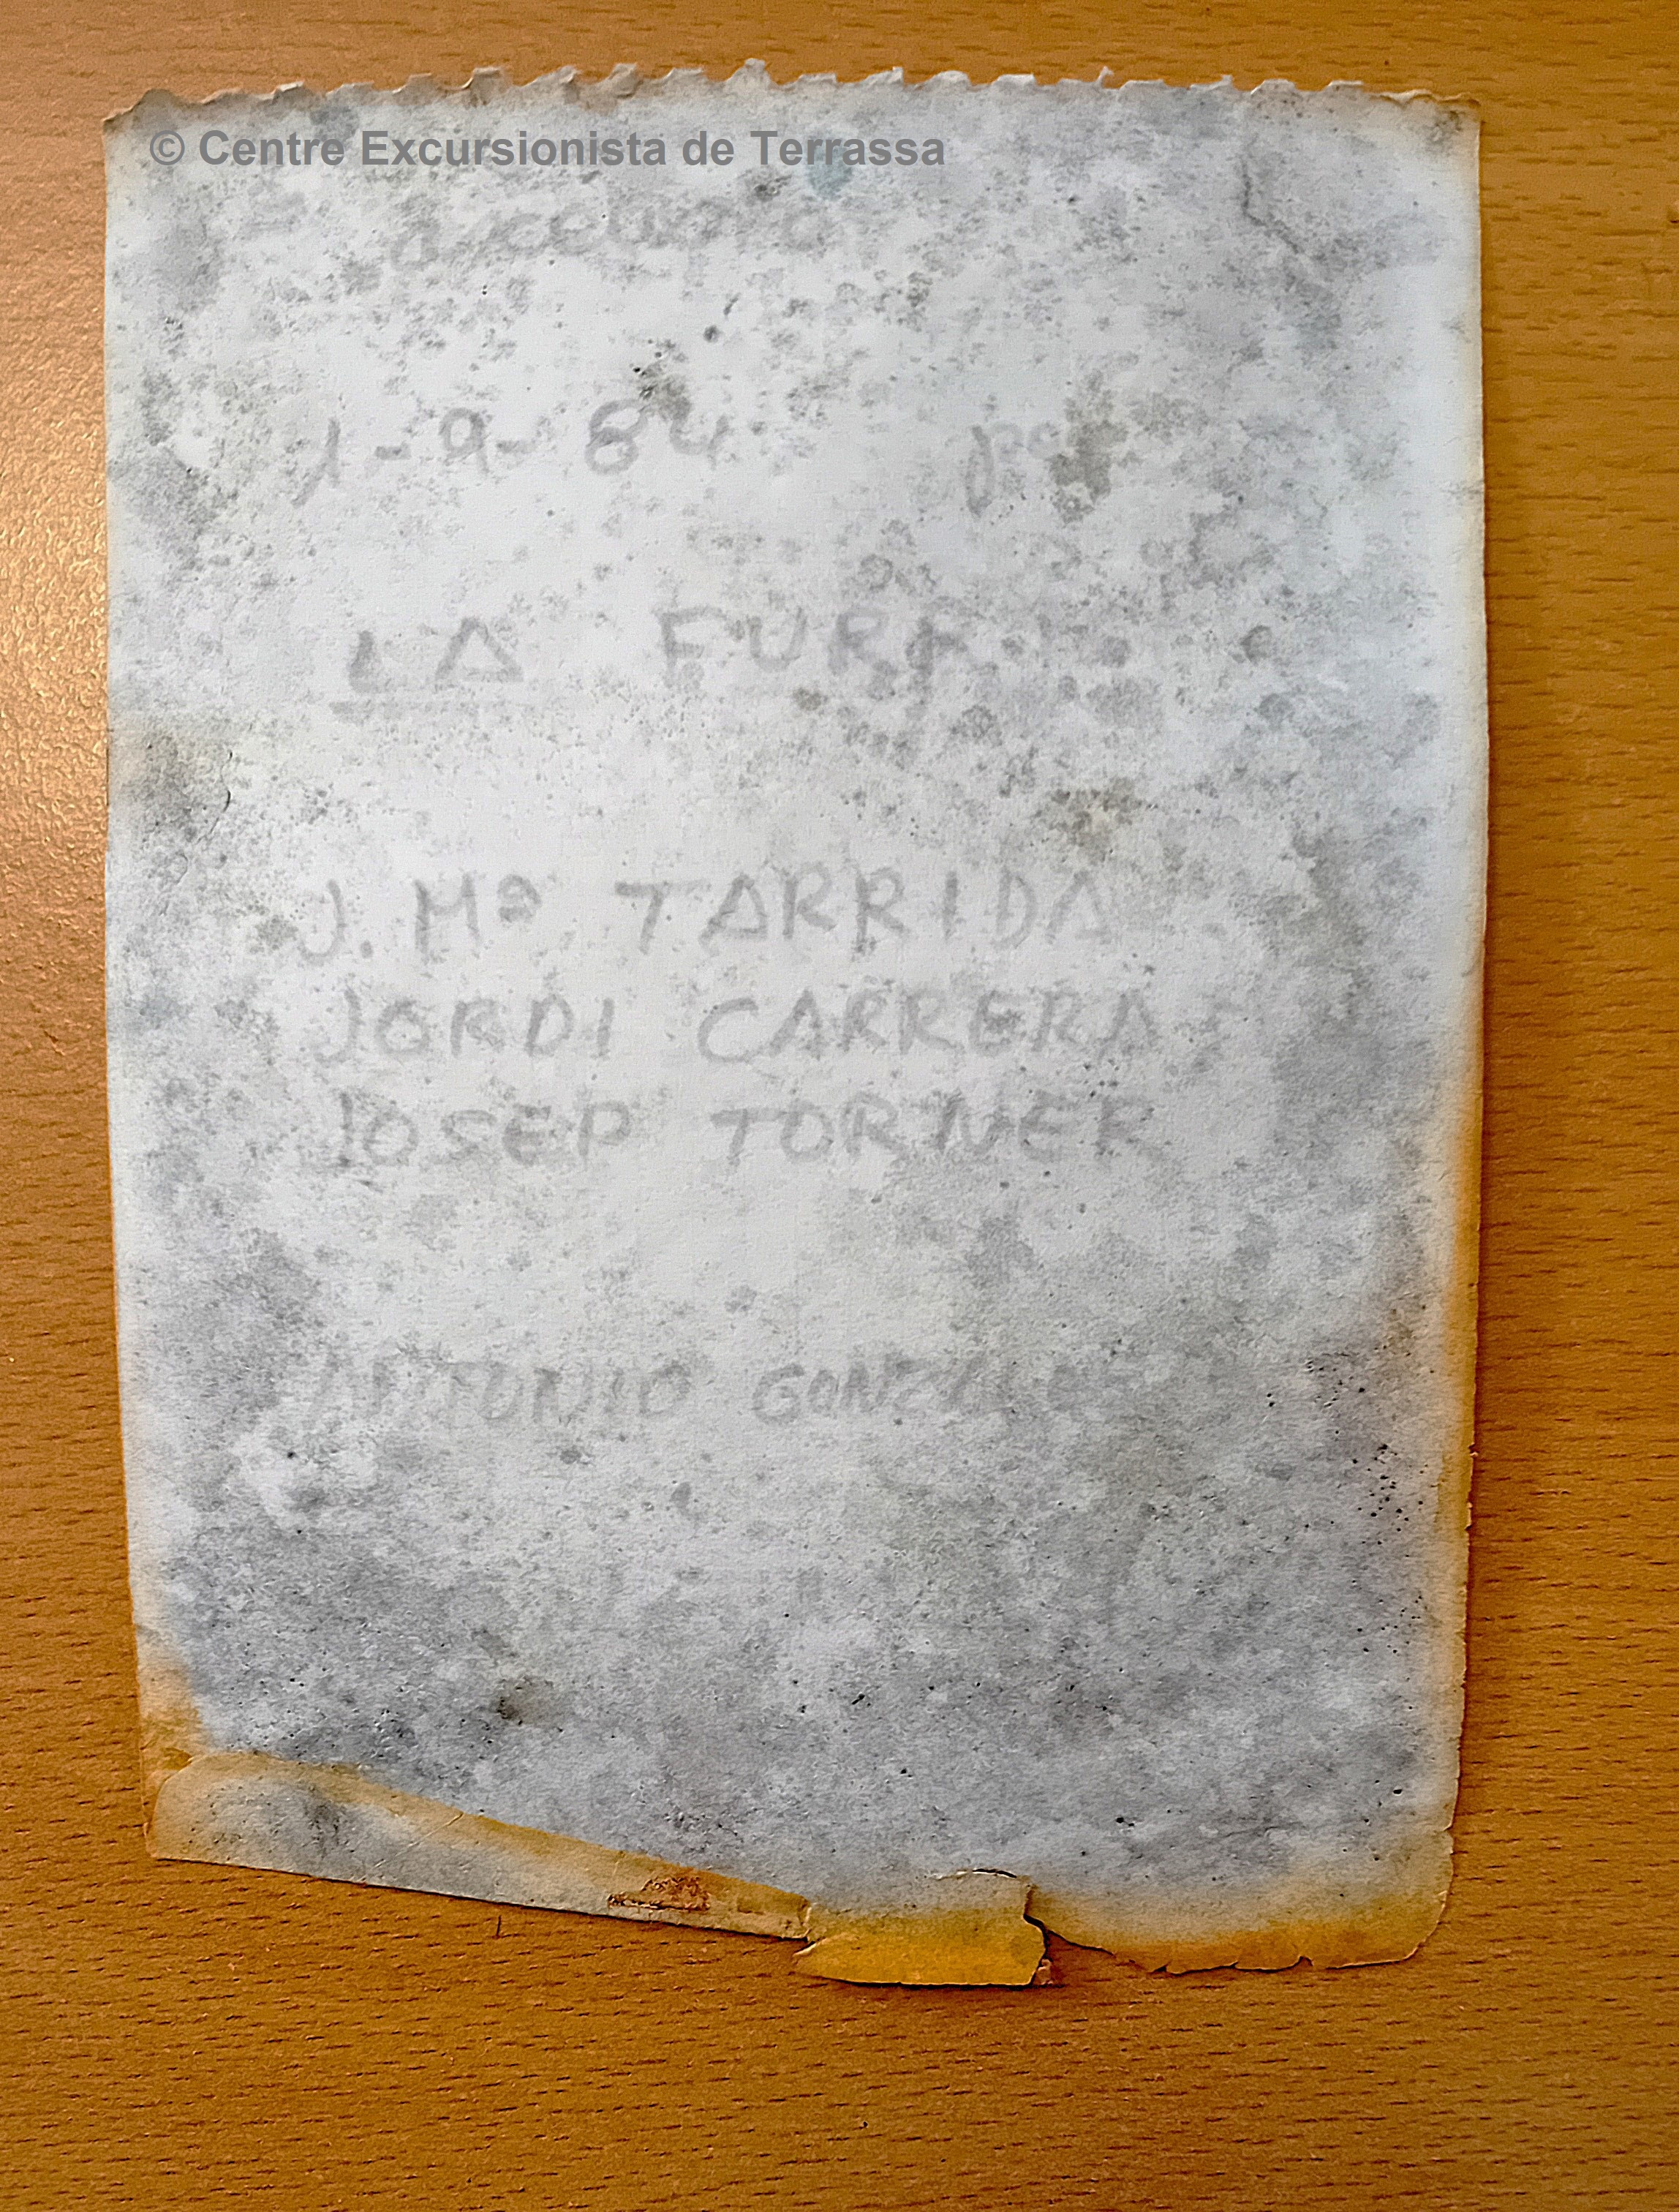 © Centre Excursionista de Terrassa
1-9-84
LA
J. Mª TARRIDA
JORDI CARRERA
JOSEP TORNER
ANTONIO